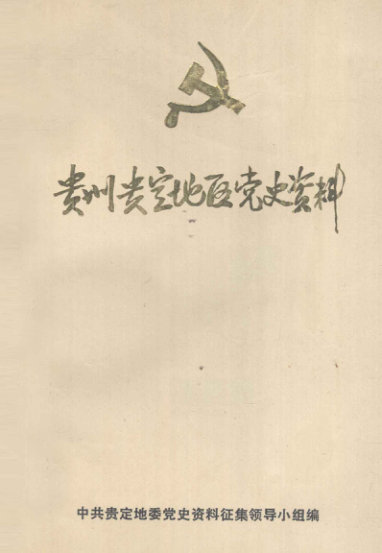 贵州贵定地区党史资料
中共贵定地委党史资料征集领导小组编